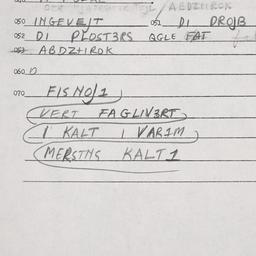 050 INGEVE/T 051 DI DROJB
052 DI PLOST3RS QGLE FAT
053 ABDZ+IROK
060 D
070 FISNO/1
VERT FAGLIV3RT
I KALT I VAR1M
MERSTNS KALT1